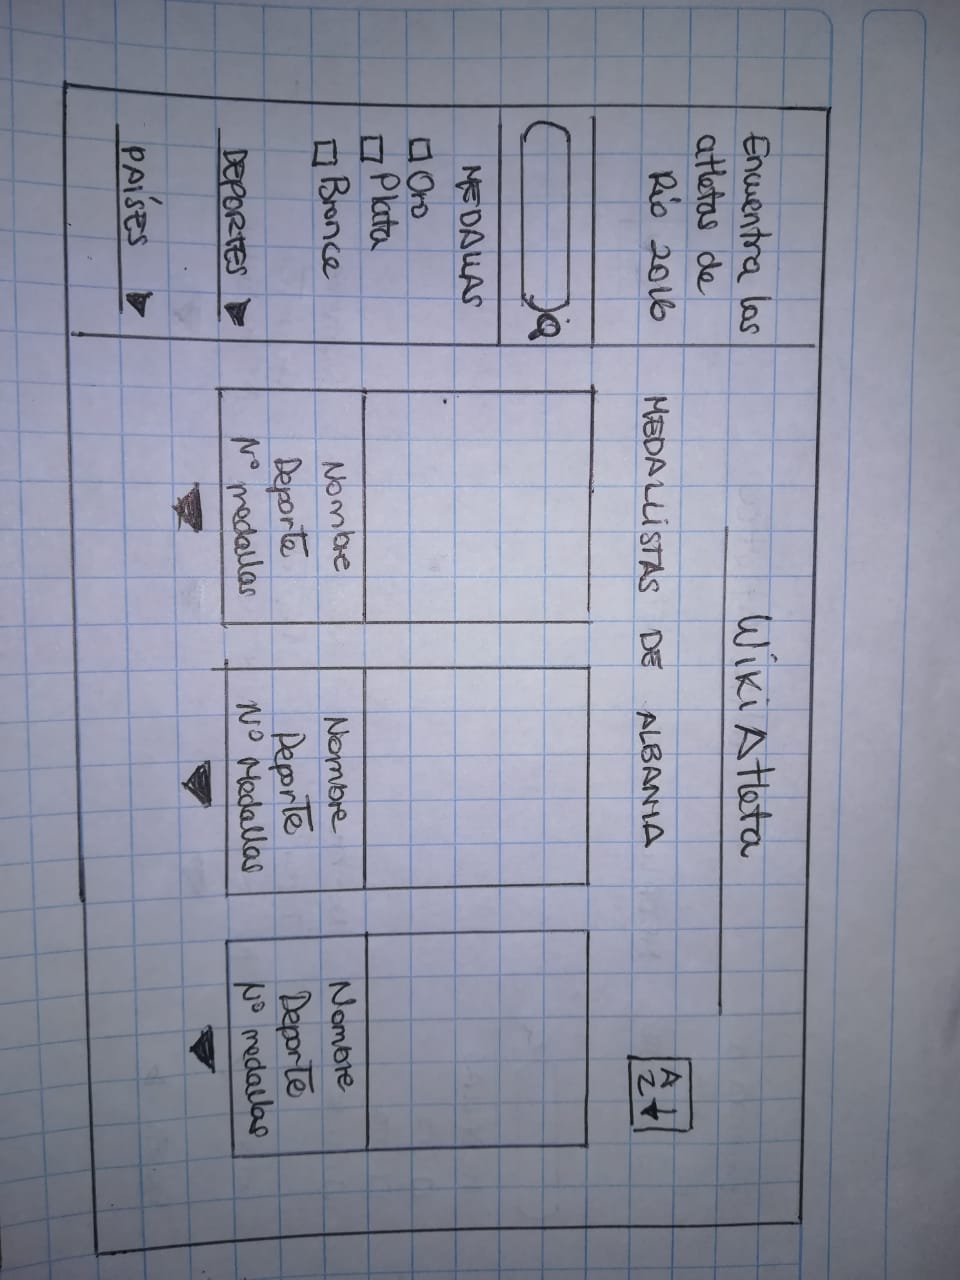 Encuentra los
atletas de
Río 2016
MEDALLAS
Oro
Plata
Bronce
DEPORTES
PAÍSES
Wiki Atleta
MEDALLISTAS DE ALBANIA
A
Z
Nombre
Deporte
Nº medallas
Nombre
Deporte
Nº Medallas
Nombre
Deporte
Nº medallas